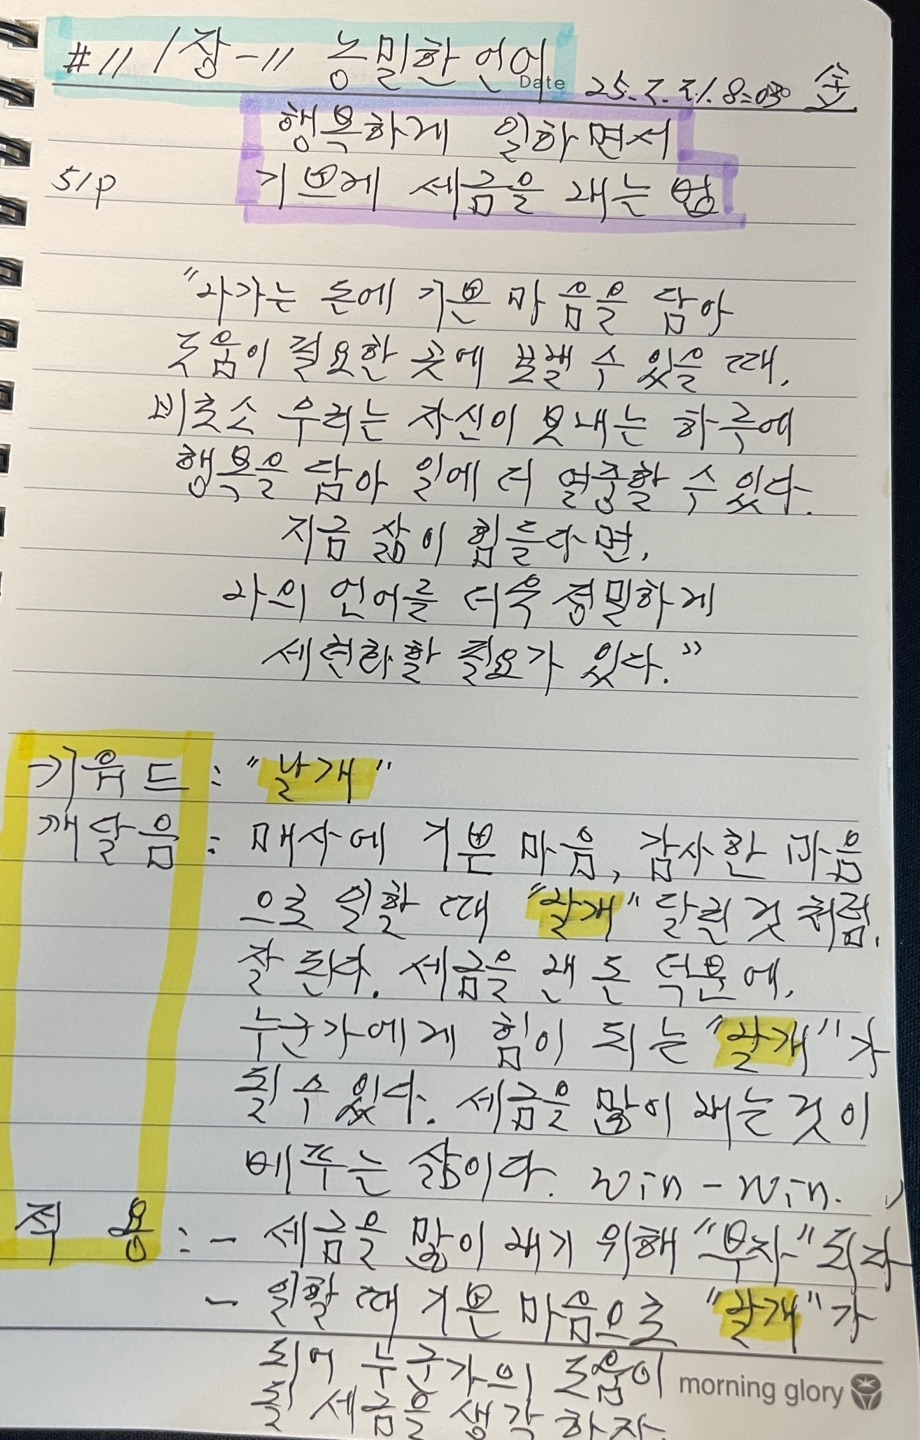 #11 1장-11 농밀한 언어
Date 25.7.21. 8:030
행복하게 일하면서
51p 기쁘게 세금을 내는 법
"나가는 돈에 기쁜 마음을 담아
도움이 필요한 곳에 보낼 수 있을 때,
비로소 우리는 자신이 보내는 하루에
행복을 담아 일에 더 열중할 수 있다.
지금 삶이 힘들다면,
나의 언어를 더욱 정밀하게
세련화할 필요가 있다."
키워드 : "날개"
깨달음 : 매사에 기쁜 마음, 감사한 마음
으로 일할 때 "날개" 달린 것 처럼,
잘 된다. 세금을 낸 돈 덕분에,
누군가에게 힘이 되는 "날개"가
될 수 있다. 세금을 많이 내는 것이
베푸는 삶이다. win-win.
적용 : - 세금을 많이 내기 위해 "부자" 되자
- 일할 때 기쁜 마음으로 "날개"가
되어 누군가의 도움이
될 세금을 생각하자.
morning glory